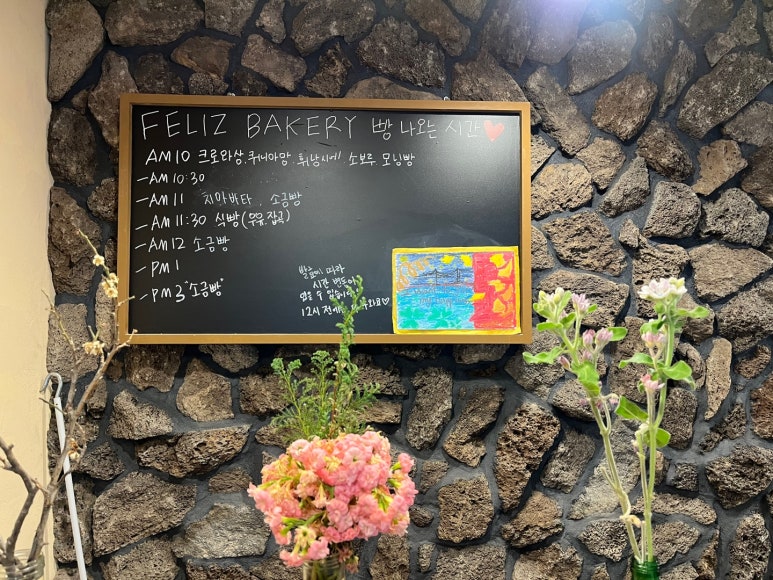 FELIZ BAKERY 빵 나오는 시간
AM10 크로와상. 쿠니아망. 휘낭시에 소보루 모닝빵
-AM10:30
-AM11 치아바타, 소금빵
-AM11:30 식빵(우유,잡곡)
-AM12 소금빵
-PM1
-PM3 "소금빵"
발효에 따라
시간 변동이
있을 수 있습니
12시 전에